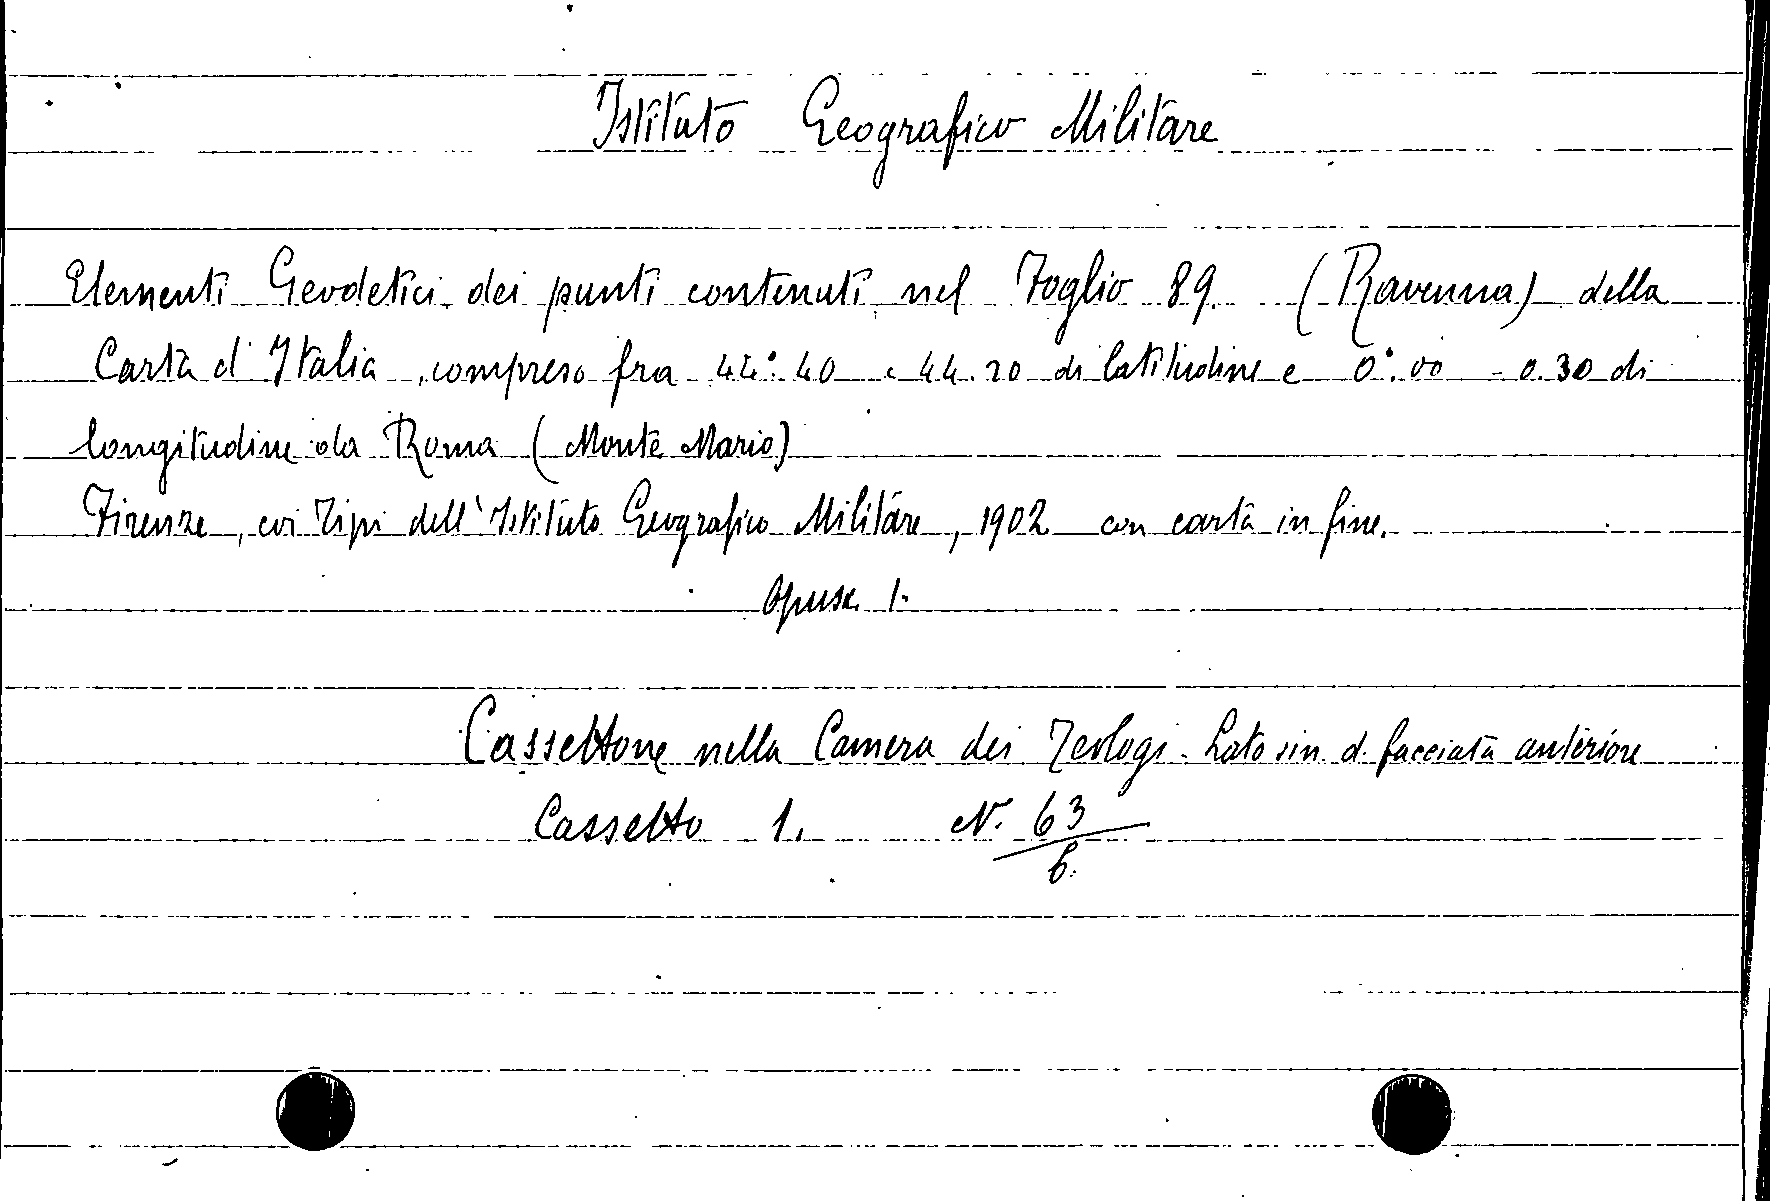 Istituto Geografico Militare
Elementi Geodetici dei punti contenuti nel Foglio 89 (Ravenna) della
Carta d'Italia, compreso fra 44°.40 e 44.20 di latitudine e 0°.00 - 0.30 di
longitudine da Roma (Monte Mario)
Firenze, coi Tipi dell'Istituto Geografico Militare, 1902 con carta in fine.
Opusc. 1.
Cassettone nella Camera dei Teologi - Lato sin. d. facciata anteriore
Cassetto 1. N. 63/6.